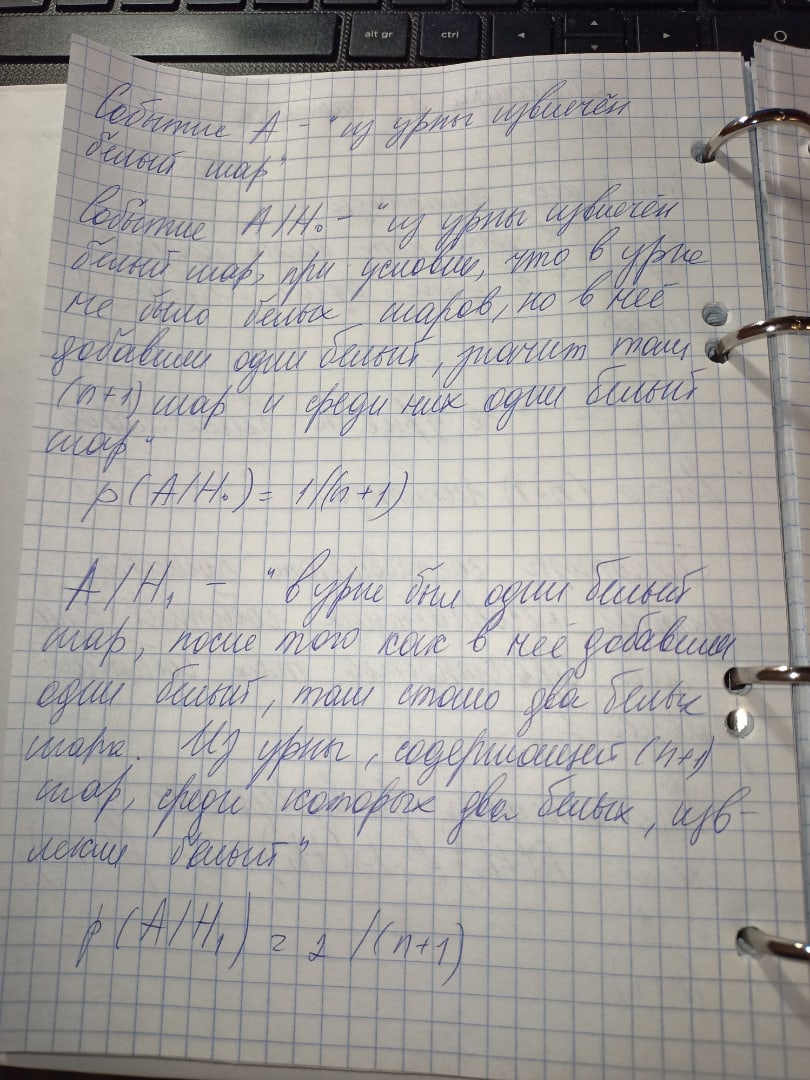 alt gr
ctrl
Событие A – "из урны извлечён
белый шар"
Событие A/H₀ – "из урны извлечён
белый шар, при условии, что в урне
не было белых шаров, но в неё
добавили один белый, значит там
(n+1) шар и среди них один белый
шар"
p(A/H₀) = 1/(n+1)
A/H₁ – "в урне был один белый
шар, после того как в неё добавили
один белый, там стало два белых
шара. Из урны, содержащей (n+1)
шар, среди которых два белых, изв-
лекли белый"
p(A/H₁) = 2/(n+1)